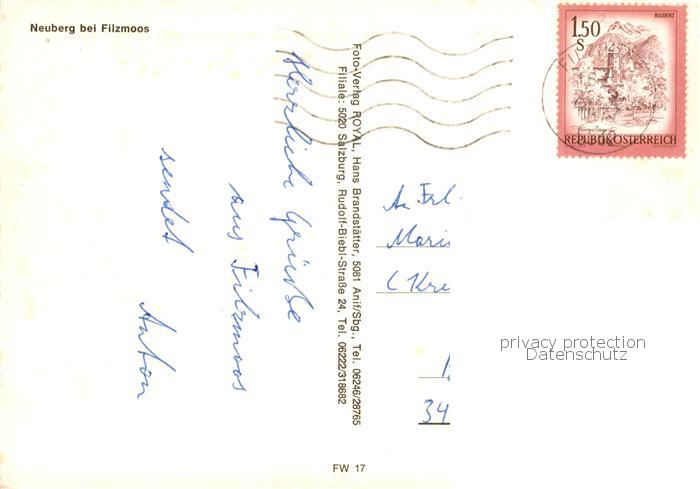 Neuberg bei Filzmoos
Herzliche Grüße
aus Filzmoos
sendet Anton
Foto-Verlag ROYAL, Hans Brandstätter, 5081 Anif/Sbg., Tel. 06246/28765
Filiale: 5020 Salzburg, Rudolf-Biebl-Straße 24, Tel. 06222/318682
FW 17
1.50
S
BLUDENZ
REPUBLIK ÖSTERREICH
An Frl.
Mari
(Kre
34
privacy protection
Datenschutz